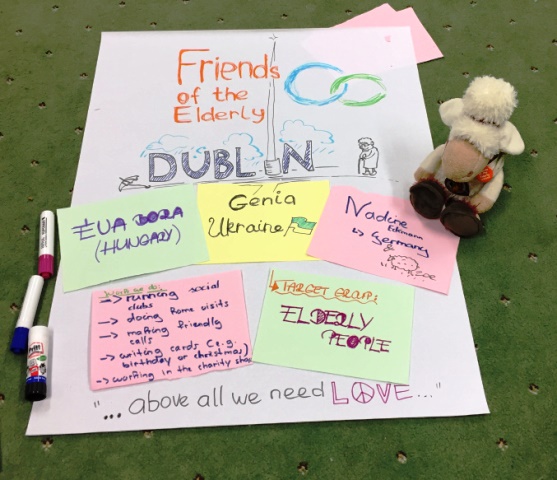 Friends
of the
Elderly
DUBLIN
ÉVA DORA
(HUNGARY)
Genia
Ukraine
Nadine
↳ Germany
→ running social
clubs
→ doing home visits
→ making friendly
calls
→ writing cards (e.g.
birthday or christmas)
→ working in the charity shop
TARGET GROUP:
ELDERLY
PEOPLE
"... above all we need LOVE..."
Pritt